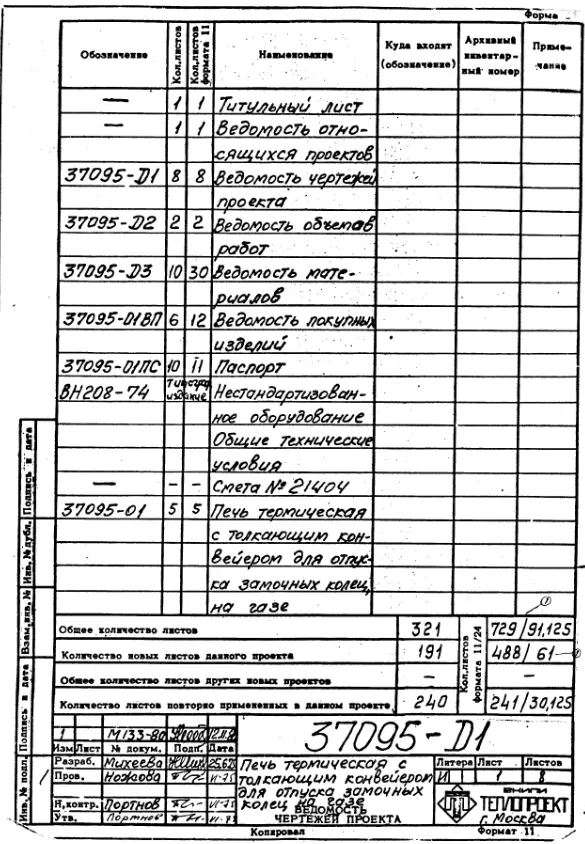 Форма
Обозначение Кол.листов Кол.листов формата 11 Наименование Куда входит (обозначение) Архивный инвентарный номер Примечание
— 1 1 Титульный лист
— 1 1 Ведомость отно-
сящихся проектов
37095-D1 8 8 Ведомость чертежей
проекта
37095-D2 2 2 Ведомость объемов
работ
37095-D3 10 30 Ведомость мате-
риалов
37095-01ВП 6 12 Ведомость покупных
изделий
37095-01ПС 10 11 Паспорт
ВН208-74 Типогра. издание Нестандартизован-
ное оборудование
Общие технические
условия
— - - Смета № 21404
37095-01 5 5 Печь термическая
с толкающим кон-
вейером для отпус-
ка замочных колец,
на газе
Общее количество листов 321 Кол.листов формата 11/24 729/91,125
Количество новых листов данного проекта 191 488/61
Общее количество листов других новых проектов — —
Количество листов повторно примененных в данном проекте 240 241/30,125
1 М133-80
37095-D1
Изм Лист № докум. Подп. Дата
Разраб. Михеева
Пров. Ножова
Н.контр. Портнов
Утв. Портнов
Печь термическая с
толкающим конвейером
для отпуска замочных
колец на газе
ВЕДОМОСТЬ
ЧЕРТЕЖЕЙ ПРОЕКТА
Литера Лист Листов
И 1 8
ВНИПИ
ТЕПЛОПРОЕКТ
г. Москва
Копировал Формат 11
Инв.№ подл. Подпись и дата Взам.инв.№ Инв.№ дубл. Подпись и дата